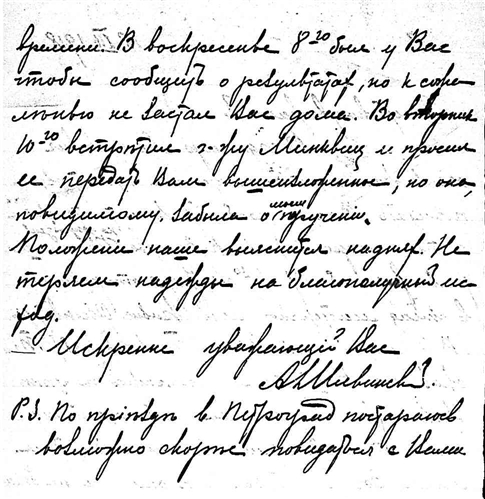 времени. В воскресенье 8го был у Вас
чтобы сообщить о результатах, но к сожа-
лѣнiю не застал Вас дома. Во вторник
10го встрѣтил г-жу Минкевиц и просил
ее передать Вам вышеизложенное, но она,
повидимому, забыла о моем порученiи.
Положенiе наше выяснится на днях. Не
теряем надежды на благополучный ис
ход.
Искренне уважающiй Вас
P.S. По прiѣздѣ в Петроград постараюсь
возможно скорѣе повидаться с Вами